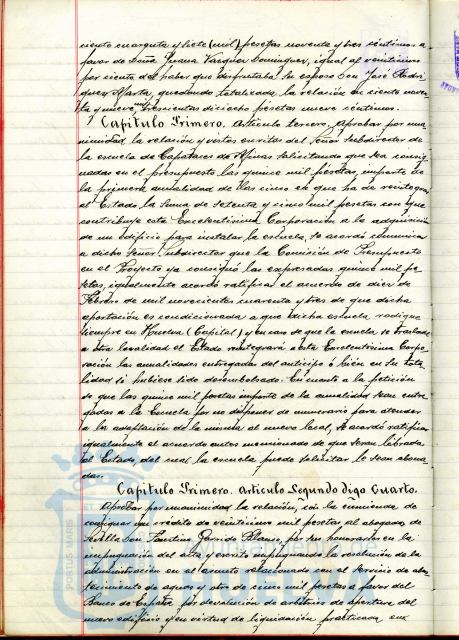 ciento cuarenta y siete (mil) pesetas noventa y tres céntimos a
favor de Doña Juana Vazquez Dominguez, igual al veintiuno
por ciento del haber que disfrutaba su esposo Don José Rodri-
guez Marta, quedando totalizada la relación en ciento noven-
ta y nueve mil trescientas dieciocho pesetas nueve céntimos.
Capitulo Primero. Articulo tercero. Aprobar por una-
nimidad la relación y vistos escritos del Señor Subdirector de
la escuela de Capataces de Minas solicitando que sea consig-
nadas en el presupuesto las quince mil pesetas, importe de
la primera anualidad de las cinco en que ha de reintegrar
al Estado, la suma de setenta y cinco mil pesetas con que
contribuye esta Excelentisima Corporación a la adquisición
de un edificio para instalar la escuela, se acordó comunicar
a dicho Señor Subdirector que la Comisión de Presupuesto
en el Proyecto ya consignó las expresadas quince mil pe-
setas, igualmente acordó ratificar el acuerdo de diez de
Febrero de mil novecientos cuarenta y tres de que dicha
aportación es condicionada a que dicha escuela radique
siempre en Huelva (Capital) y en caso de que la escuela se traslade
a otra localidad el Estado reintegrará a esta Excelentisima Corpo-
ración las anualidades entregadas del anticipo ó bién en su tota-
lidad si hubiese sido desembolsado. En cuanto a la petición
de que las quince mil pesetas importe de la anualidad sean entre-
gadas a la Escuela por no disponer de numerario para atender
a la adaptación de la misma al nuevo local, se acordó ratificar
igualmente el acuerdo antes mencionado de que seran libradas
al Estado, del cual la escuela puede solicitar le sean abona-
das.
Capitulo Primero. Articulo Segundo digo Cuarto.
Aprobar por unanimidad la relación, con la enmienda de
consignar un crédito de veinticinco mil pesetas al abogado de
Sevilla Don Faustino Garrido Blanco, por sus honorarios en la
impugnación del alza y escrito impugnando la resolución de la
administración en el asunto relacionado con el servicio de abas-
tecimiento de aguas y otro de cinco mil pesetas a favor del
Banco de España por devolución de arbitrios de apertura del
nuevo edificio y en virtud de liquidación practicada, sus
PORTUS MARIS
HUELVA